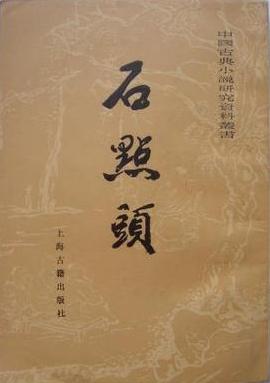 中國古典小說研究資料叢書
石點頭
上海古籍出版社